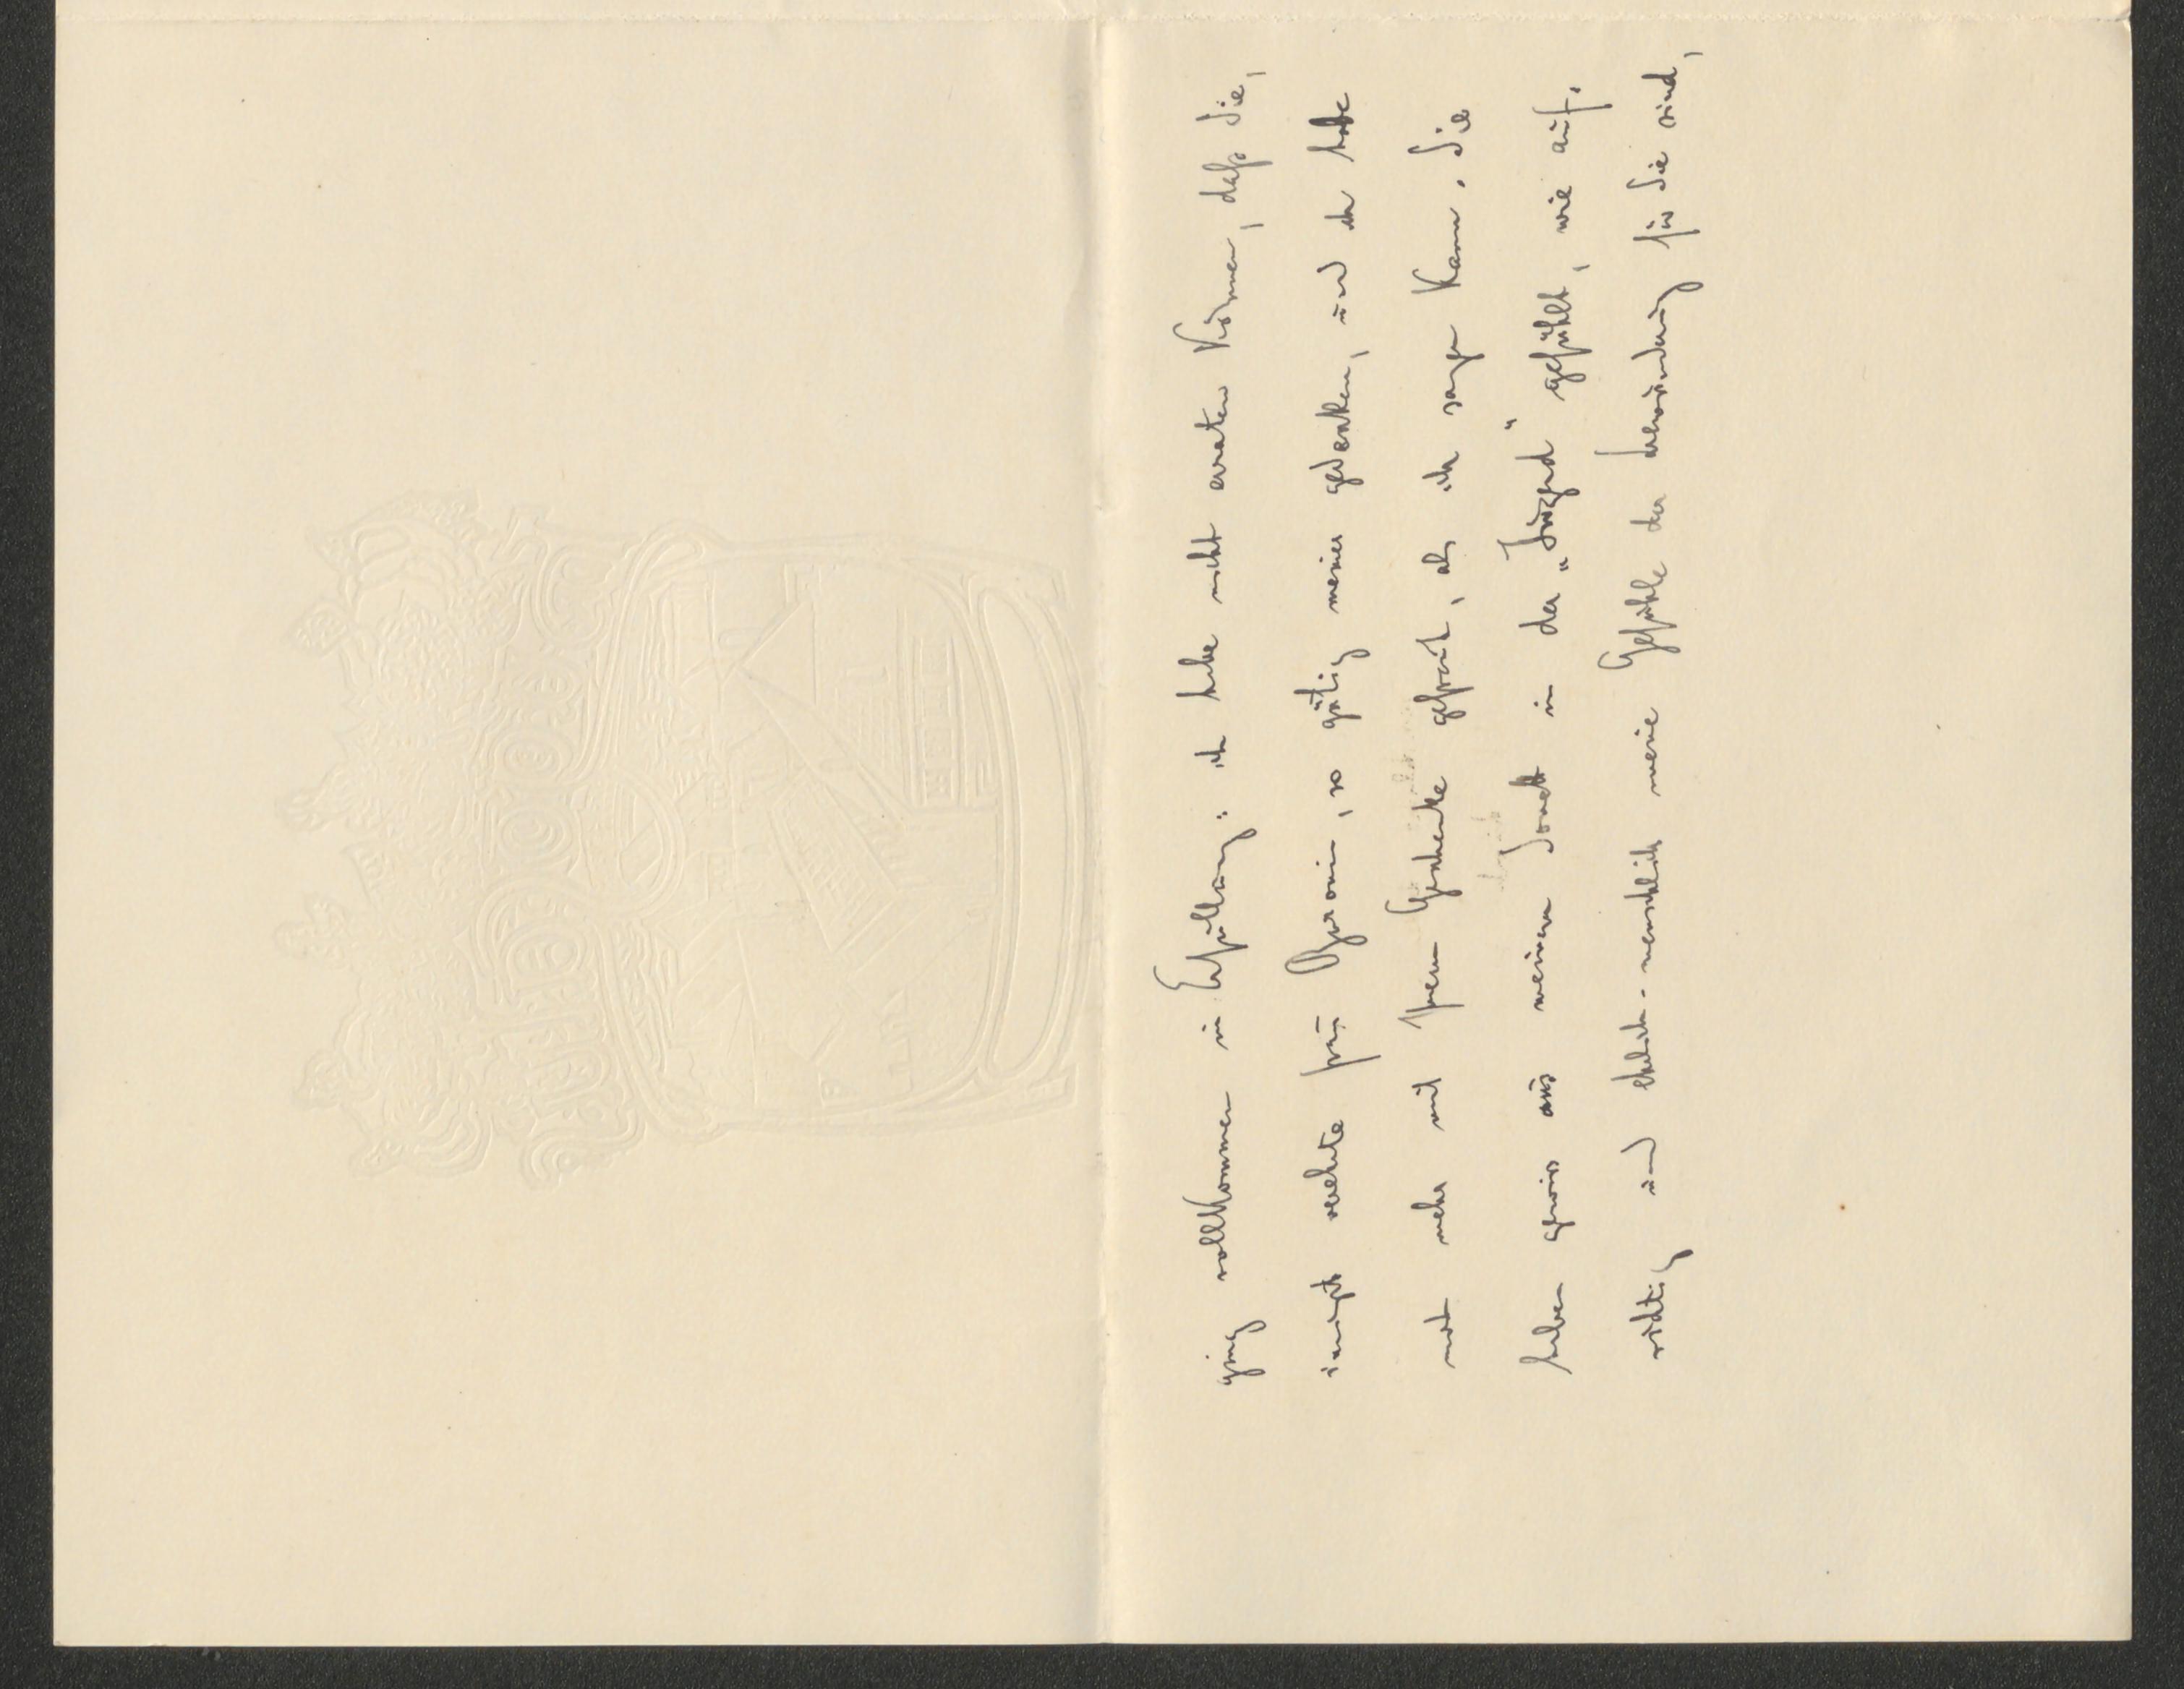 ging vollkommen in Erfüllung: ich habe nicht erraten können, daß Sie,
verehrte Frau Baronin, so gütig meiner gedenken, und ich habe
mich mehr mit Ihrem Geschenke gefreut, als ich sagen kann. Sie
haben gewiß aus meinem Sonett in der „Jugend“ gefühlt, wie auf-
richtig und ehrlich-menschlich meine Gefühle der Bewunderung für Sie sind,